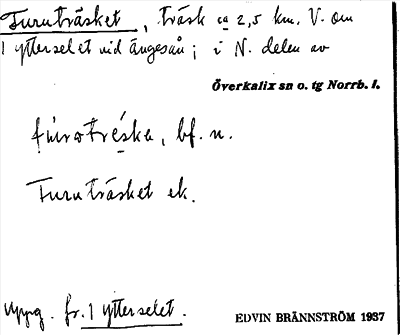 Furuträsket, träsk ca 2,5 km. V. om
1 ytterselet vid Ängesån; i N. delen av
Överkalix sn o. tg Norrb. l.
fúrotréska, bf. n.
Furuträsket ek.
Uppg. fr. 1 ytterselet.
EDVIN BRÄNNSTRÖM 1937